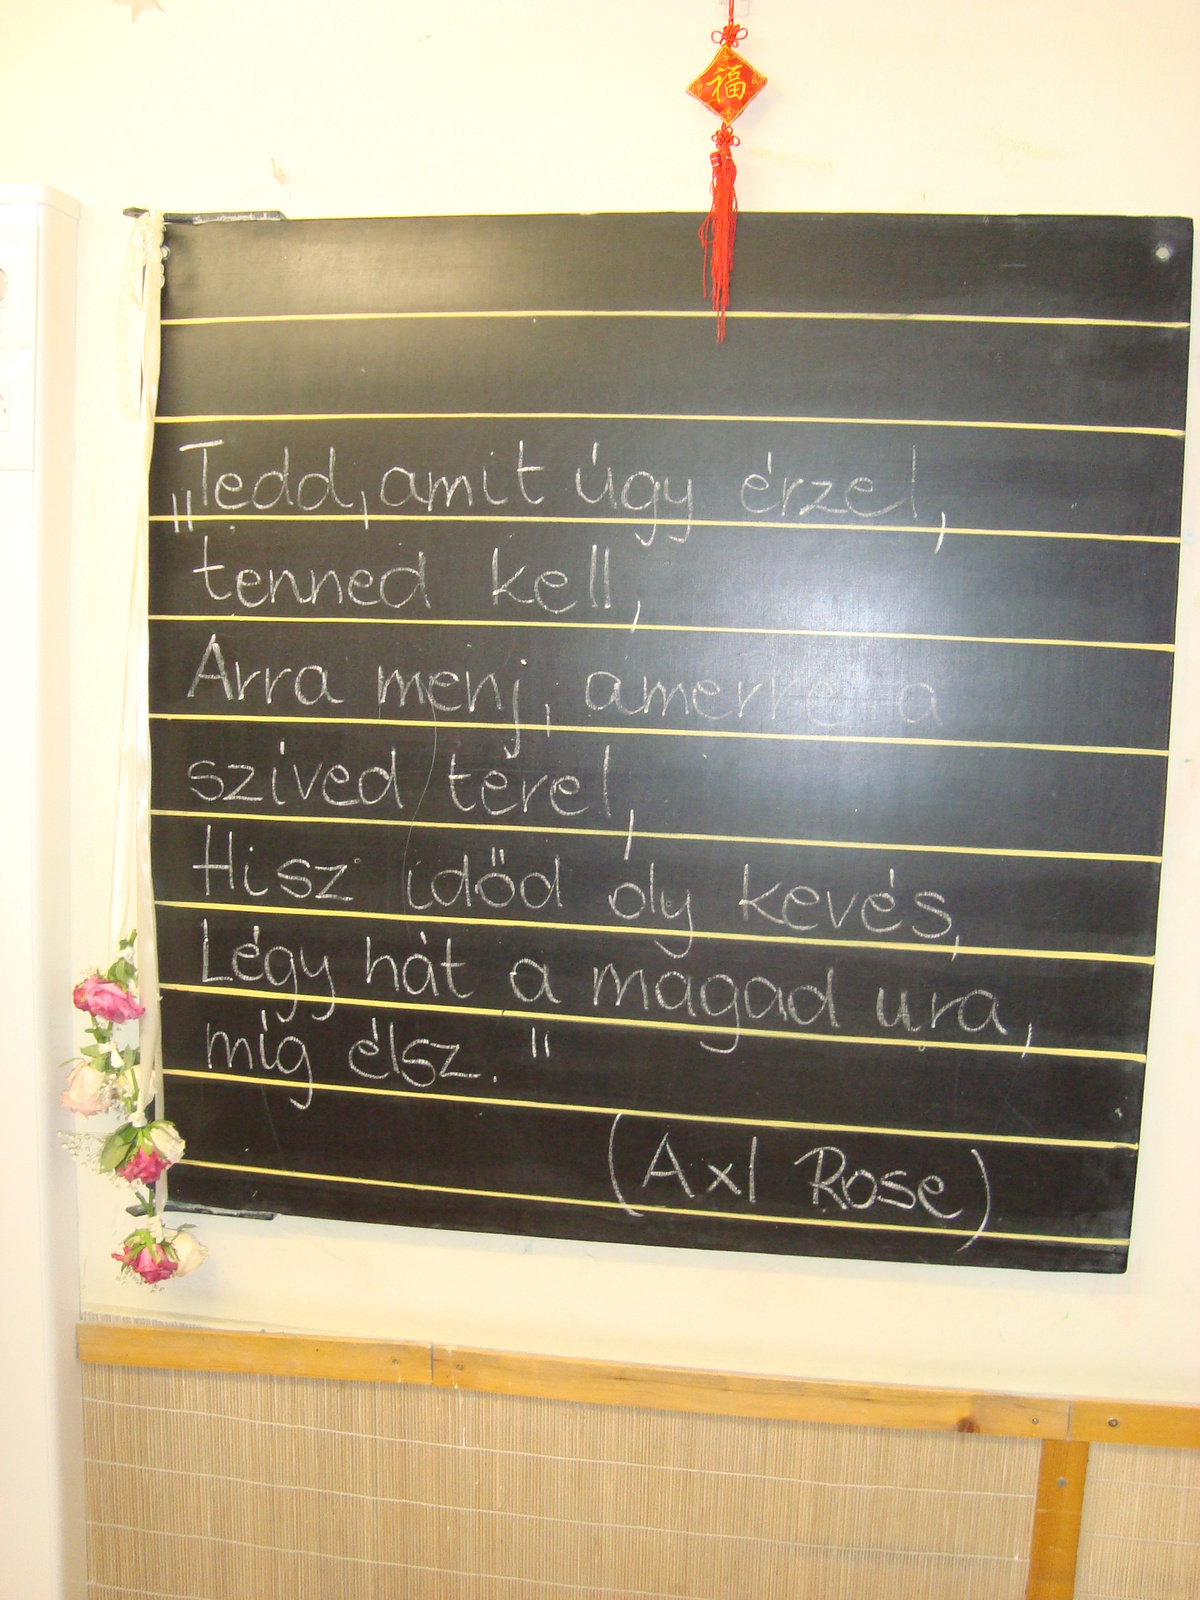 福
„Tedd, amit úgy érzel,
tenned kell,
Arra menj, amerre a
szíved terel,
Hisz időd oly kevés,
Légy hát a magad ura,
míg élsz."
(Axl Rose)